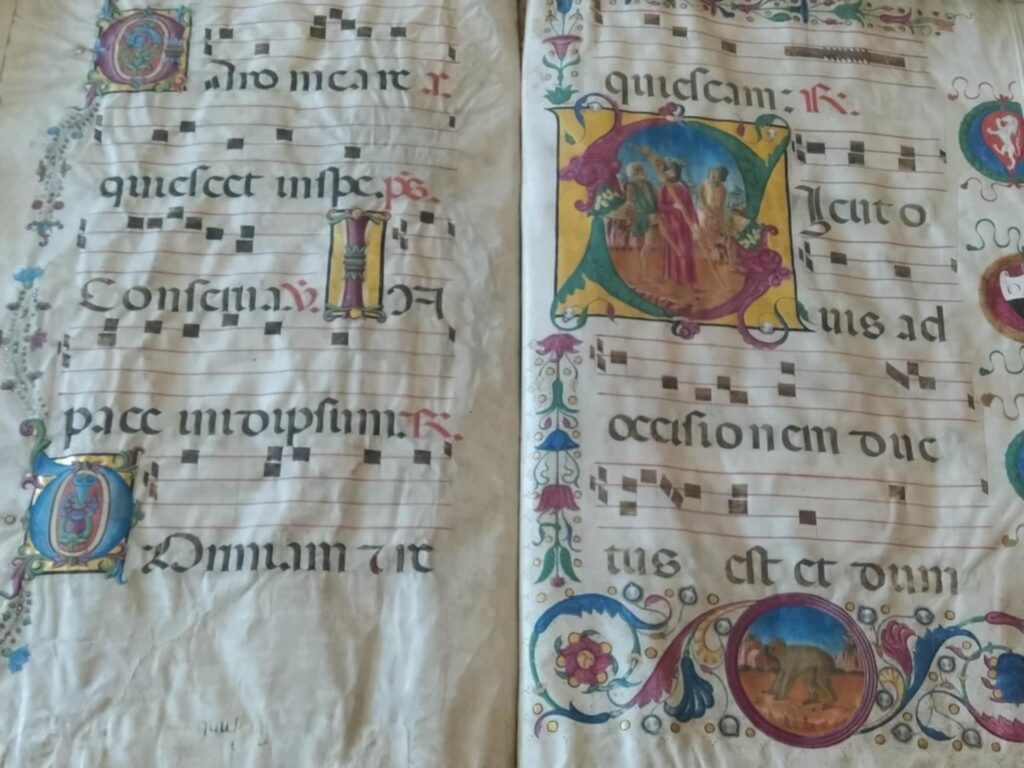 Caro mea re
quiescet in spe. ps.
Conserva. ℣. In
pace in idipsum. ℟.
Dormiam et re
quiescam: ℟.
Sicut o
uis ad
occisionem duc
tus est et dum